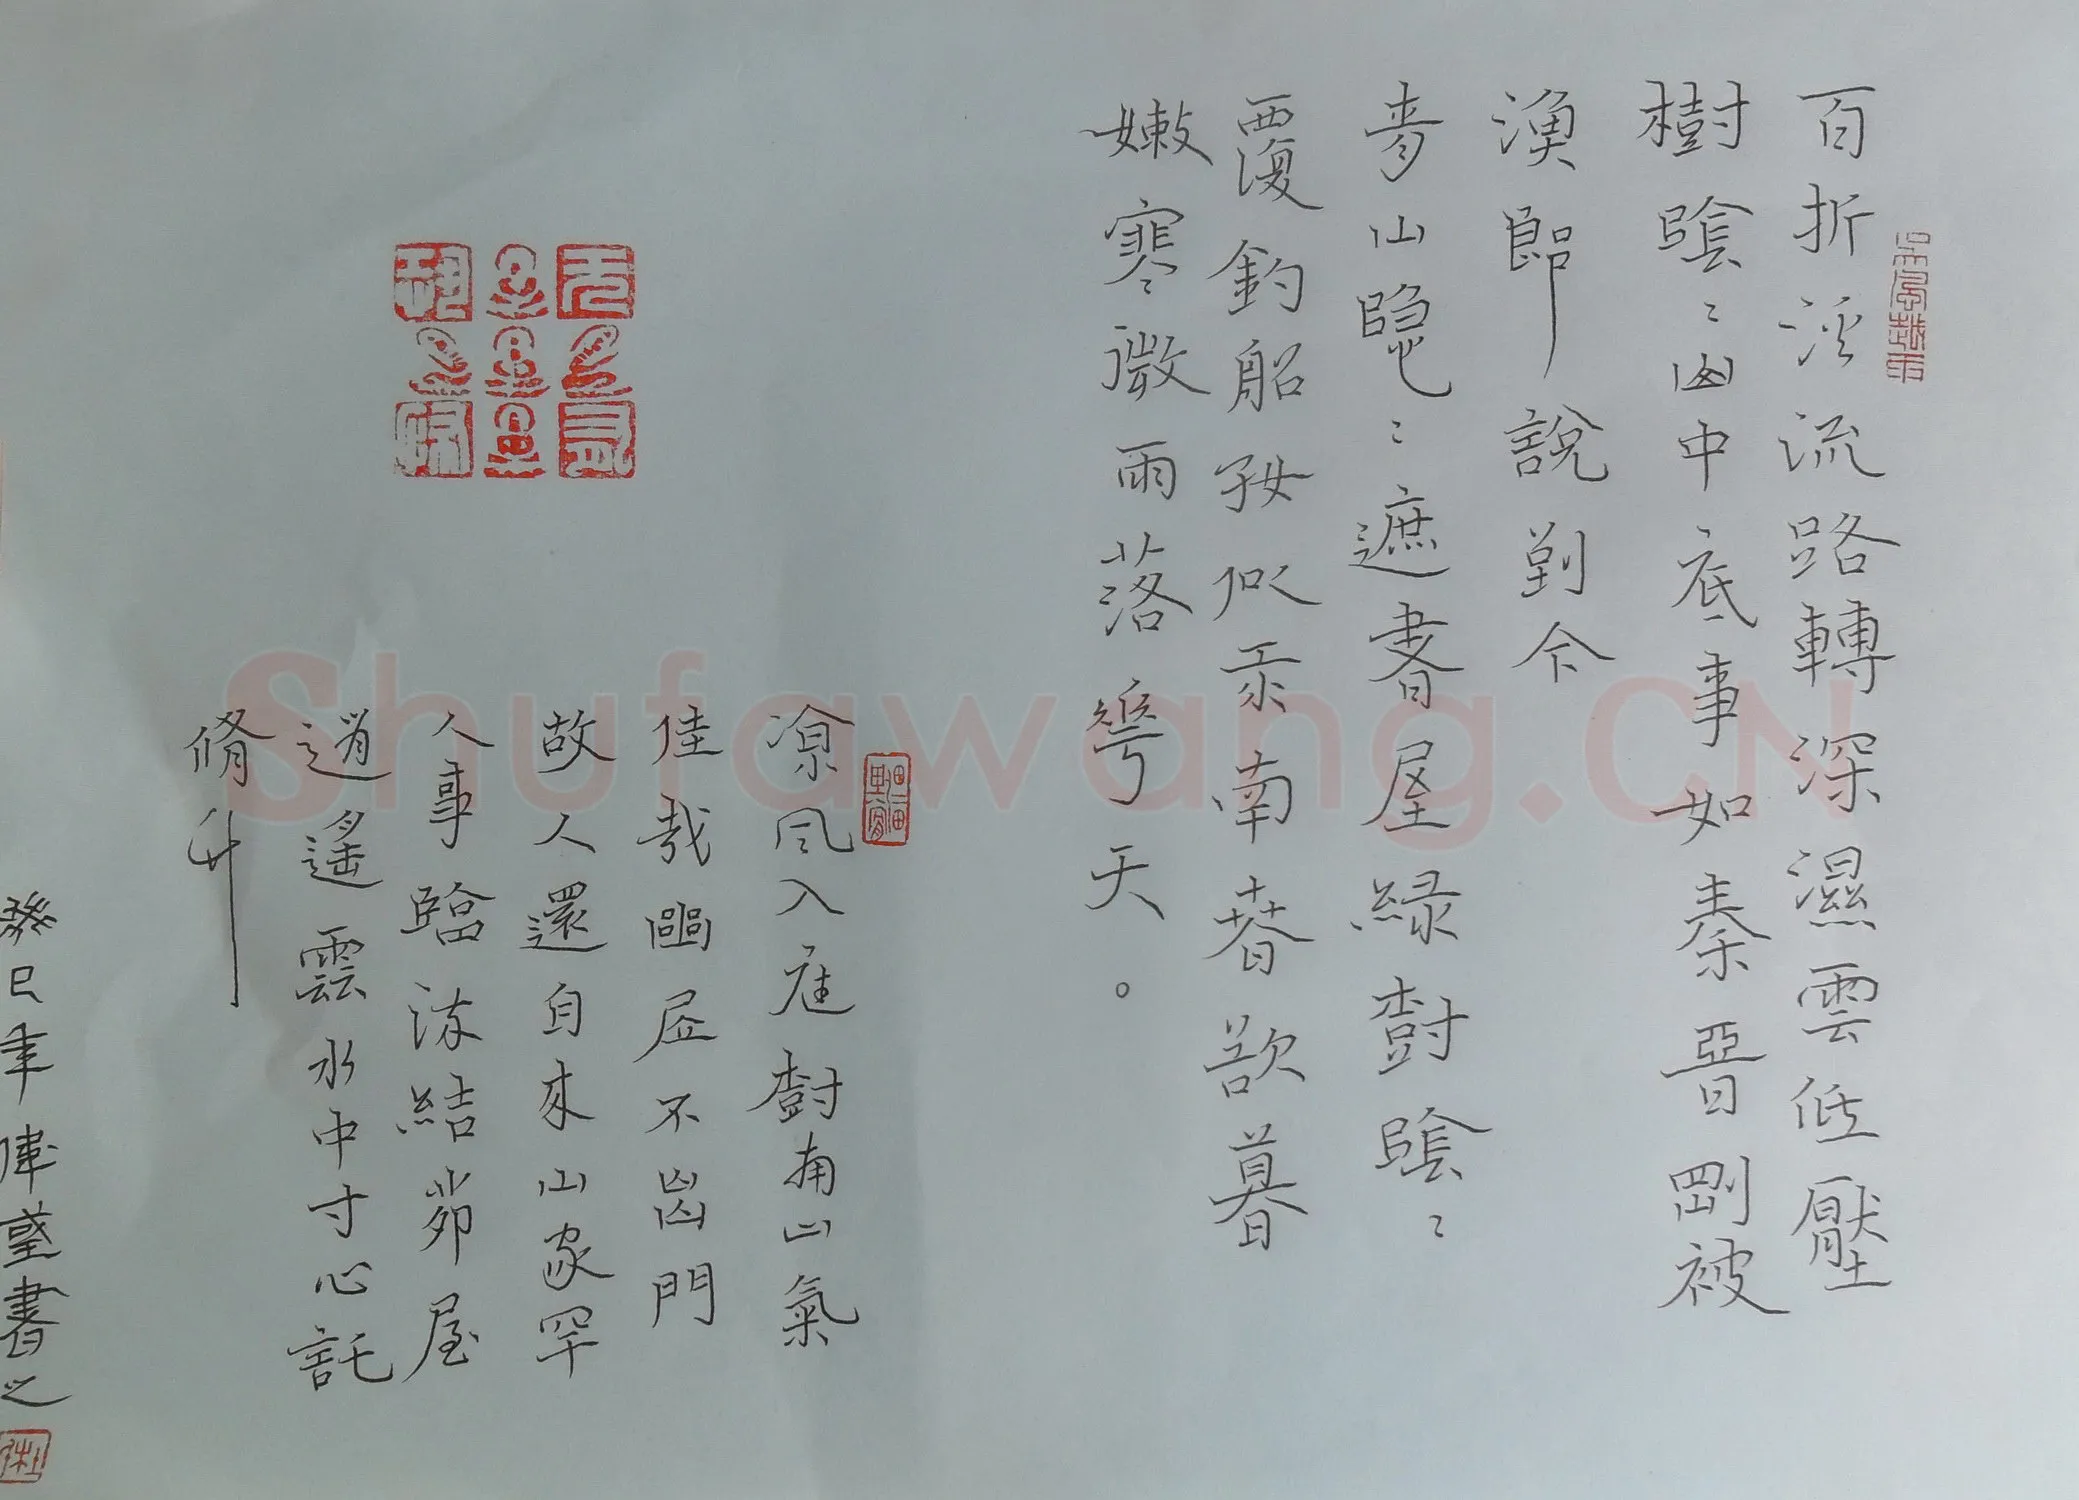 百折溪流路轉深濕雲低壓
樹陰〻山中底事如秦晉剛被
漁郎說到今
青山隱〻遮書屋綠樹陰〻
覆釣船好似江南春欲暮
嫩寒微雨落花天。
涼風入庭樹南山氣
佳哉幽居不出門
故人還自來山家罕
人事臨流結茆屋
逍遙雲水中寸心託
脩竹
癸巳年偉望書之
Shufawang.CN